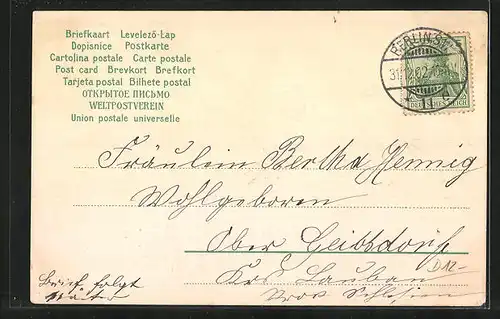 Briefkaart Levelező-Lap
Dopisnice Postkarte
Cartolina postale Carte postale
Post card Brevkort Brefkort
Tarjeta postal Bilhete postal
ОТКРЫТОЕ ПИСЬМО
WELTPOSTVEREIN
Union postale universelle
BERLIN
31.12.02
DEUTSCHES REICH
Fräulein Bertha Hennig
Wohlgeboren
Ober Geibsdorf
Krs Lauban
Prov Schlesien
D12-
Brief folgt
später